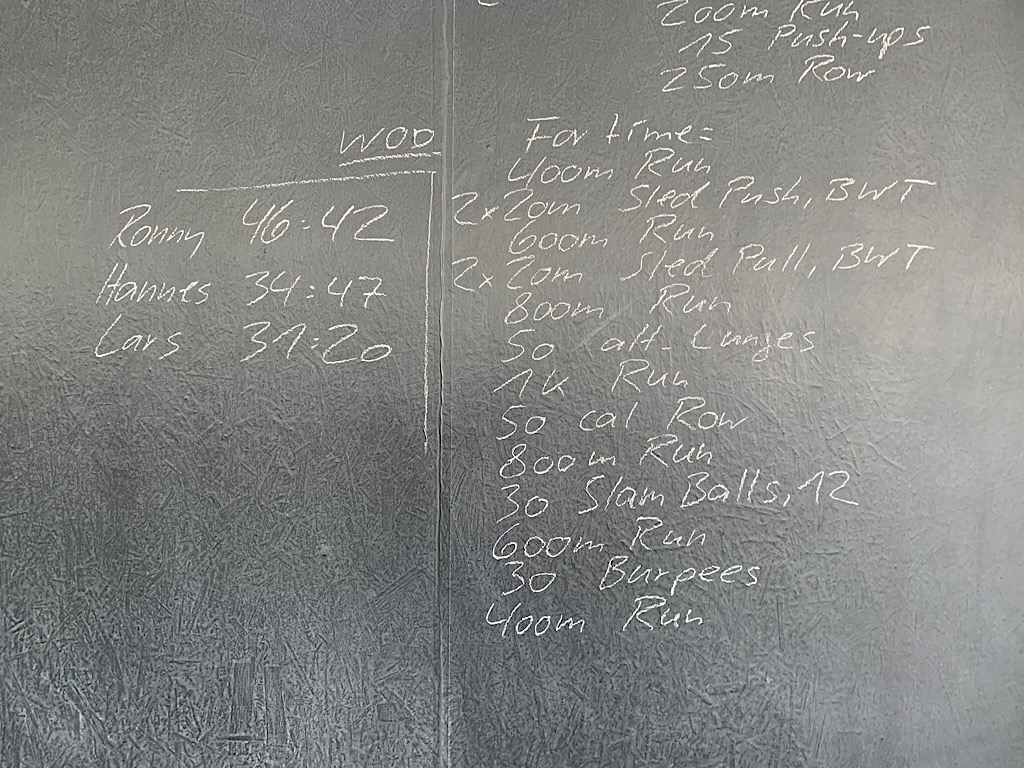 200m Run
15 Push-ups
250m Row
WOD
Ronny 46:42
Hannes 34:47
Lars 31:20
For time:
400m Run
2x20m Sled Push, BWT
600m Run
2x20m Sled Pull, BWT
800m Run
50 alt. Lunges
1k Run
50 cal Row
800m Run
30 Slam Balls, 12
600m Run
30 Burpees
400m Run